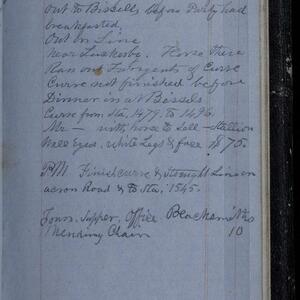 out to Bissells, before Party had
breakfasted,
Out on Line
near Horse Hire
Ran out of Curve
Curve not finished before
Dinner in at Bissels
Curve from Sta, 1479. to 1496.
Mr — with horse to sell — Stallion
Wall Eyed, white Legs & face $ 75.
P.M. Finish curve & Straight Line on
across Road & to Sta, 1545.
Town. Supper. Office
Mending Chain 10